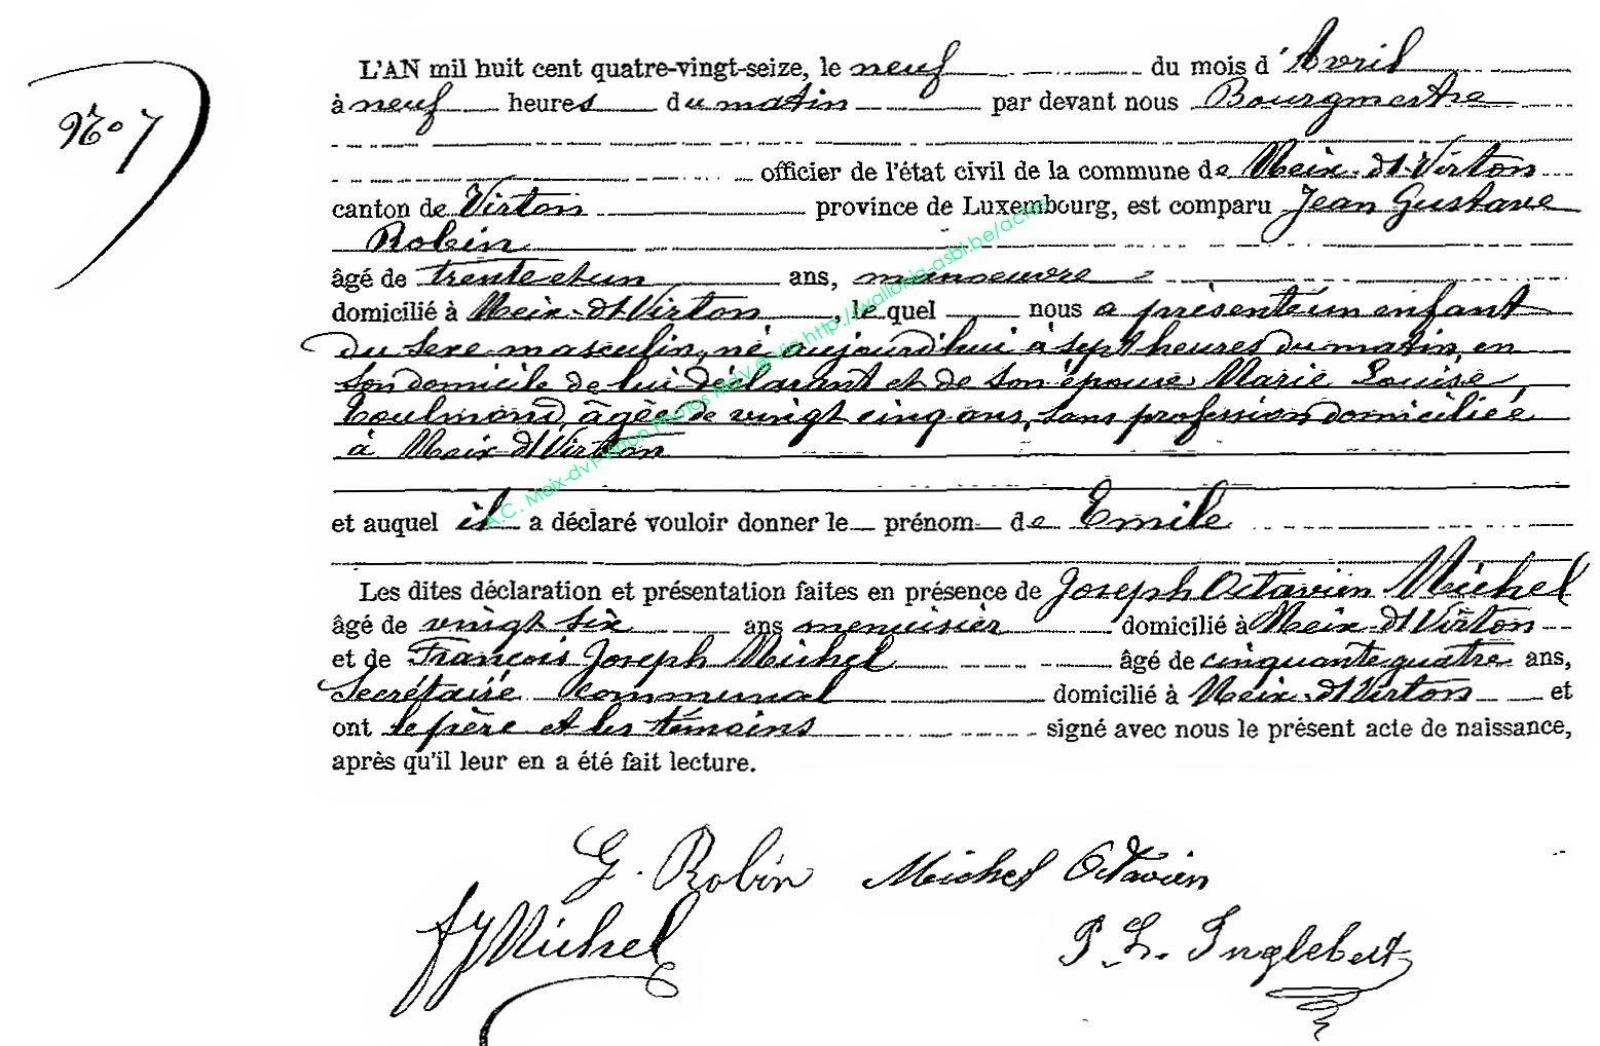 N° 7
L'AN mil huit cent quatre-vingt-seize, le neuf du mois d'Avril
à neuf heures du matin par devant nous Bourgmestre
officier de l'état civil de la commune de Meix-dt-Virton
canton de Virton province de Luxembourg, est comparu Jean Gustave
Robin
âgé de trente et un ans, manoeuvre
domicilié à Meix-dt-Virton, le quel nous a présenté un enfant
du sexe masculin, né aujourd'hui à sept heures du matin, en
son domicile de lui déclarant et de son épouse Marie Louise
Coulmond, âgée de vingt cinq ans, sans profession domiciliée
à Meix-dt-Virton
et auquel il a déclaré vouloir donner le prénom de Emile
Les dites déclaration et présentation faites en présence de Joseph Octavien Michel
âgé de vingt six ans menuisier domicilié à Meix-dt-Virton
et de François Joseph Michel âgé de cinquante quatre ans,
Secrétaire communal domicilié à Meix-dt-Virton et
ont le père et les témoins signé avec nous le présent acte de naissance,
après qu'il leur en a été fait lecture.
G. Robin Michel Octavien
FJ Michel
P L. Inglebert
A.C. Meix-dv-Virton Photos via http://wallonia-asbl.be/actes